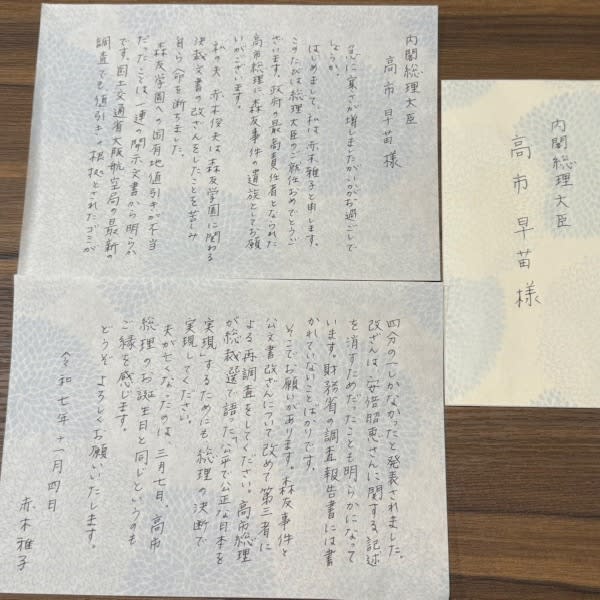 内閣総理大臣
高市早苗様
急に寒さが増しましたがいかがお過ごしで
しょうか。
はじめまして、私は赤木雅子と申します。
このたびは総理大臣のご就任おめでとうご
ざいます。政府の最高責任者となられた
高市総理に森友事件の遺族としてお願
いがございます。
私の夫、赤木俊夫は森友学園に関わる
決裁文書の改ざんをしたことを苦しみ
自ら命を断ちました。
森友学園への国有地値引きが不当
だったことは一連の開示文書から明らか
です。国土交通省大阪航空局の最新の
調査でも値引きの根拠とされたゴミが
四分の一しかなかったと発表されました。
改ざんは、安倍昭恵さんに関する記述
を消すためだったことも明らかになって
います。財務省の調査報告書には書
かれていないことばかりです。
そこでお願いがあります。森友事件と
公文書改ざんについて改めて第三者に
よる再調査をしてください。高市総理
が総裁選で語った「公平で公正な日本を
実現」するためにも総理の決断で
実現してください。
夫が亡くなったのは、三月七日、高市
総理のお誕生日と同じというのも
ご縁を感じます。
どうぞよろしくお願いいたします。
令和七年十一月四日
赤木雅子
内閣総理大臣
高市早苗様